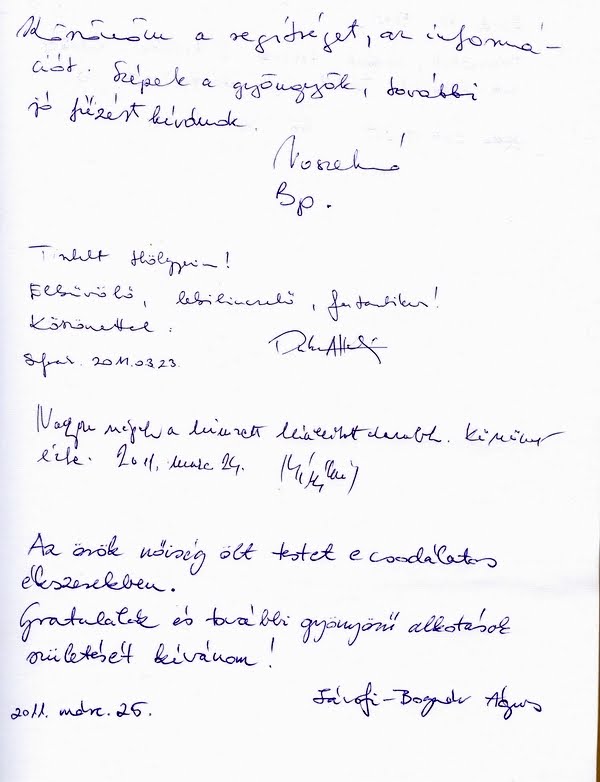 Köszönöm a segítséget, az informá-
ciót. Szépek a gyöngyök, további
jó fűzést kívánok.
Bp.
Tisztelt Hölgyeim!
Elbűvölő, lebilincselő, fantasztikus!
Köszönettel:
2011.03.23.
Nagyon szépek a kiállított darabok.
érte. 2011. márc 24.
Az örök nőiség ölt testet e csodálatos
ékszerekben.
Gratulálok és további gyönyörű alkotások
születését kívánom!
2011. márc. 25.
Sárofi-Bognár Ágnes